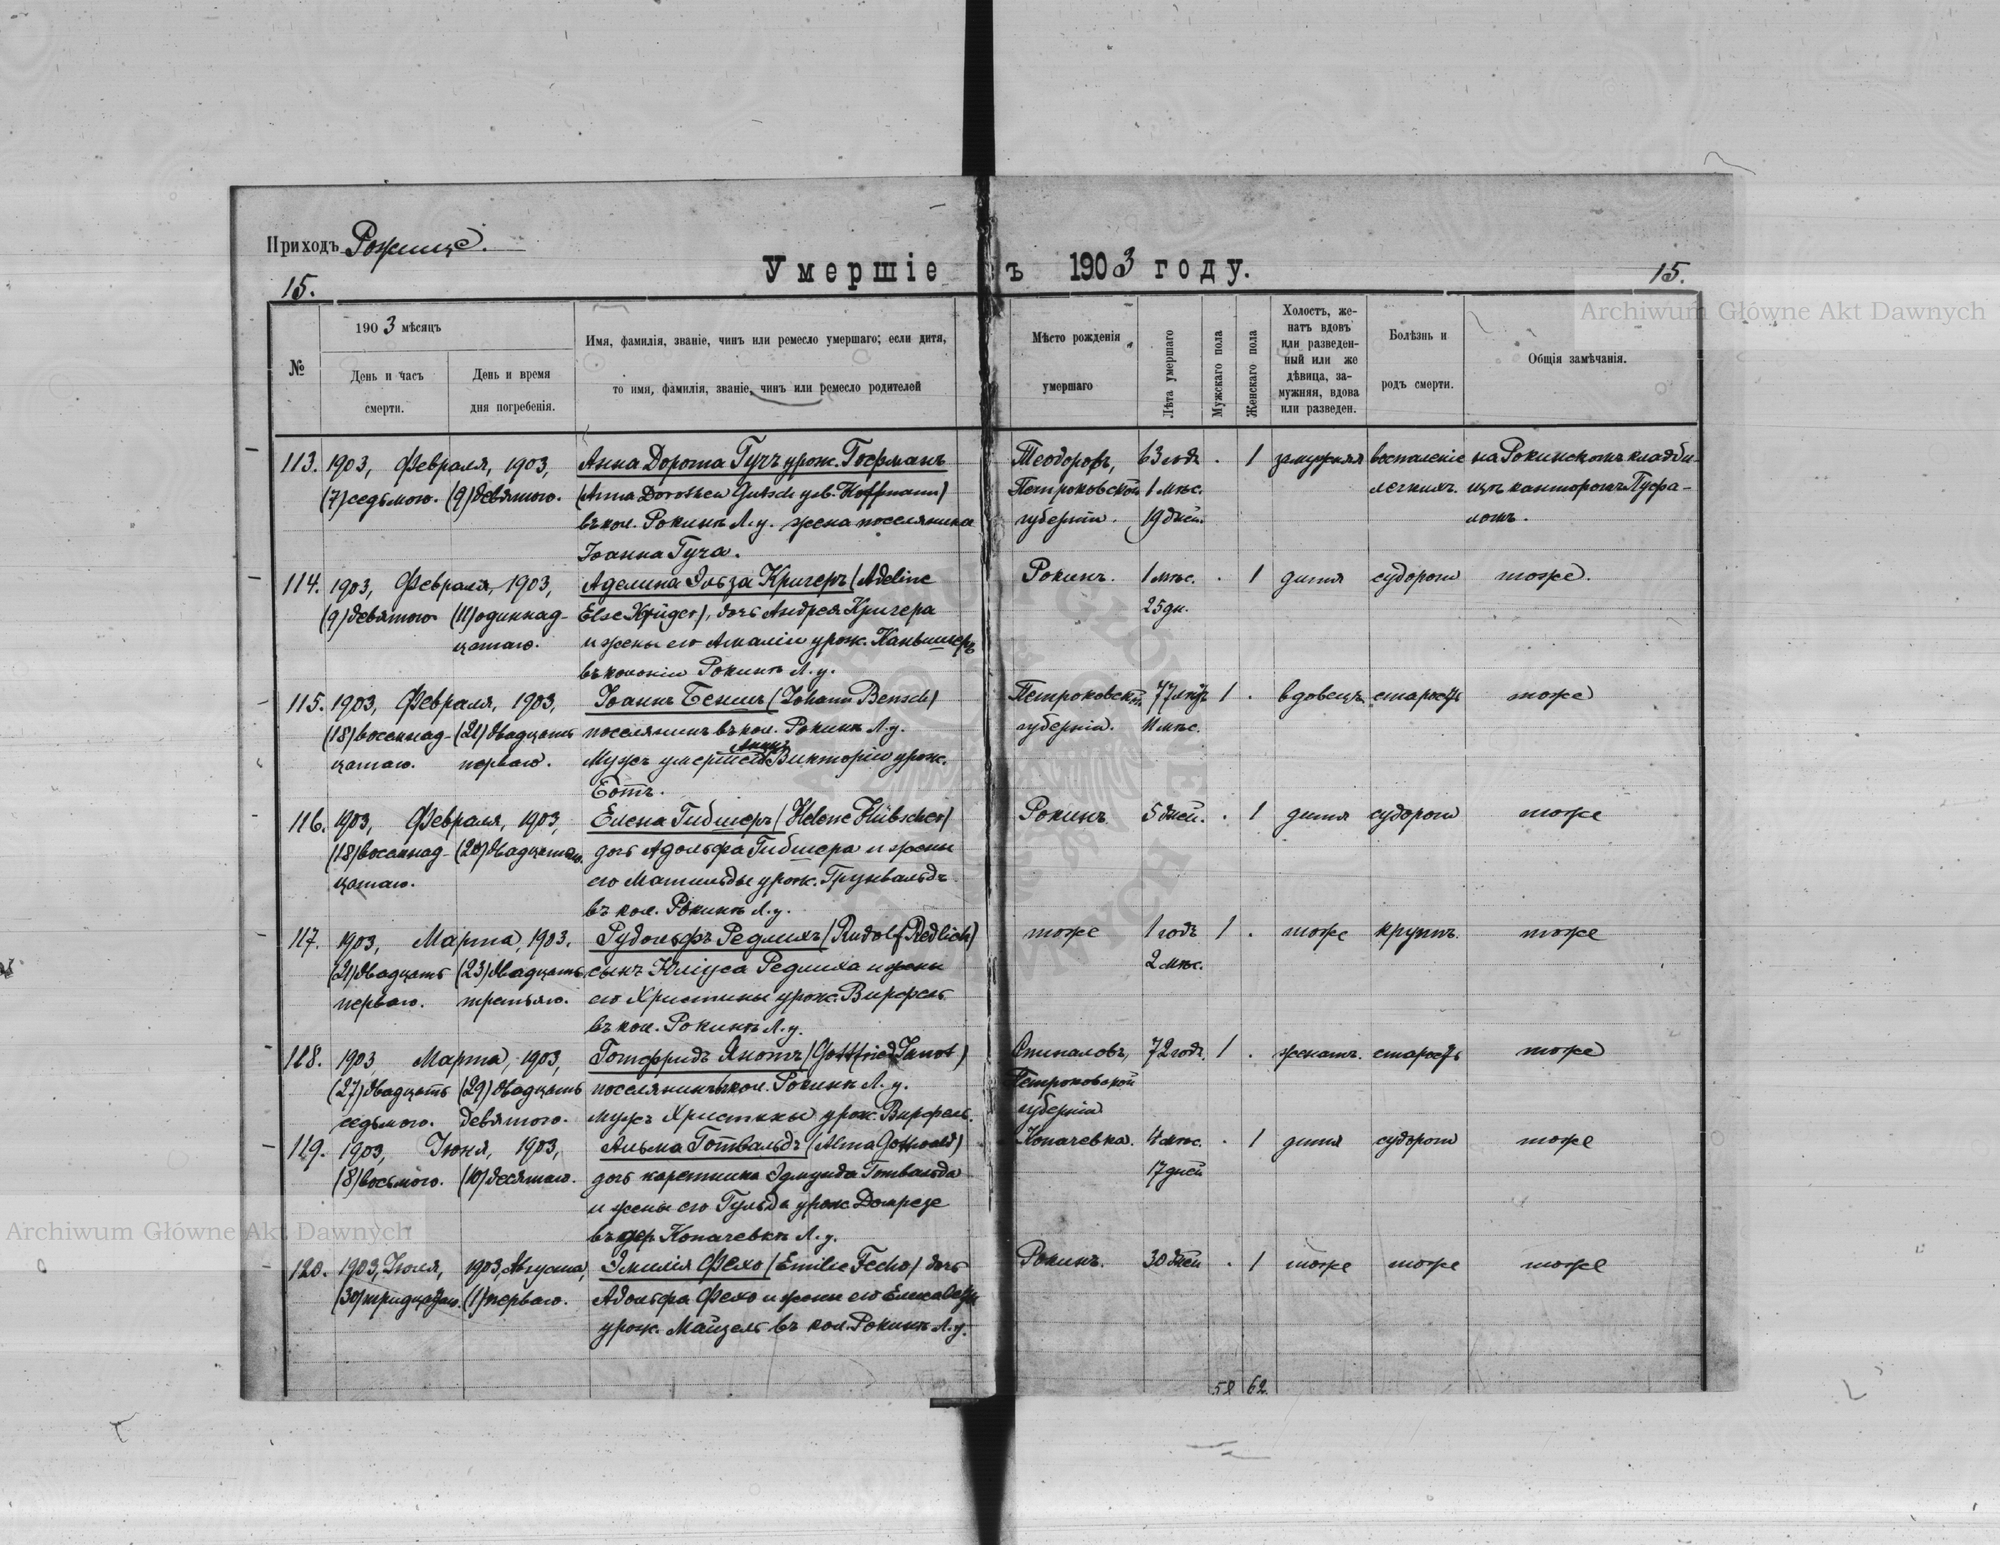 Приходъ Рожище.
Умершіе въ 1903 году.
15.
15.
Archiwum Główne Akt Dawnych
№
1903 мѣсяцъ
День и часъ
смерти.
День и время
дня погребенія.
Имя, фамилія, званіе, чинъ или ремесло умершаго; если дитя,
то имя, фамилія, званіе, чинъ или ремесло родителей
Мѣсто рожденія
умершаго
Лѣта умершаго
Мужскаго пола
Женскаго пола
Холостъ, же-
натъ вдовъ
или разведен-
ный или же
дѣвица, за-
мужняя, вдова
или разведен.
Болѣзнь и
родъ смерти.
Общія замѣчанія.
113. 1903, Февраля, 1903, Анна Доротa Гучъ урож. Гофманъ Теодоровъ, 63 годъ . 1 замужняя воспаленіе на Рокинскомъ кладби-
(7) седьмого. (9) девятого. (Anna Dorothea Gutsch geb. Hoffmann) Петроковской 1 мѣс. легкихъ. щѣ канторомъ
въ кол. Рокинѣ Л. у. жена поселянина губерніи. 19 дней.
Іоанна Гуча.
114. 1903, Февраля, 1903, Аделина Эльза Кригеръ (Adeline Рокинъ. 1 мѣс. . 1 дитя судороги тоже.
(9) девятого (11) одиннад- Else Krüger), дочь Андрея Кригера 25 дн.
цатаго. и жены его Амаліи урож.
въ колоніи Рокинѣ Л. у.
115. 1903, Февраля, 1903, Іоаннъ Беншъ (Johann Bensch) Петроковской 77 лѣтъ 1 . вдовецъ старость тоже
(18) восемнад- (21) двадцать поселянинъ въ кол. Рокинѣ Л. у. губерніи. 11 мѣс.
цатаго. перваго. Мужъ умершей Анны Викторіи урож.
Ботъ.
116. 1903, Февраля, 1903, Елена Гибшеръ (Helene Hübscher) Рокинъ 5 дней. . 1 дитя судороги тоже
(18) восемнад- (20) двадцатаго. дочь Адольфа Гибшера и жены
цатаго. его Матильды урож. Грунвальдъ
въ кол. Рокинѣ Л. у.
117. 1903, Марта, 1903. Рудольфъ Редлихъ (Rudolf Redlich) тоже 1 годъ 1 . тоже крупъ. тоже
(21) двадцать (23) двадцать сынъ Юліуса Редлиха и жены 2 мѣс.
перваго. третьяго. его Христины урож. Вирфель
въ кол. Рокинѣ Л. у.
118. 1903 Марта, 1903, Готфридъ Янотъ (Gottfried Janot) 72 годъ 1 . женатъ. старость тоже
(27) двадцать (29) двадцать поселянинъ кол. Рокинѣ Л. у. Петроковской
седьмого. девятого. мужъ Христины урож. Вирфель. губерніи
119. 1903, Іюня, 1903, Альма Готвальдъ (Alma Gottwald) Копачевка. 4 мѣс. . 1 дитя судороги тоже
(8) восьмого. (10) десятаго. дочь каретника Эдмунда Готвальда 17 дней
и жены его Гульда урож.
въ дер. Копачевкѣ Л. у.
120. 1903, Іюля, 1903, Августа, Эмилія Фехо (Emilie Fecho) дочь Рокинъ. 30 дней . 1 тоже тоже тоже
(30) тридцатаго. (1) перваго. Адольфа Фехо и жены его Елисаветы
урож. Майзель въ кол. Рокинѣ Л. у.
58 62
Archiwum Główne Akt Dawnych